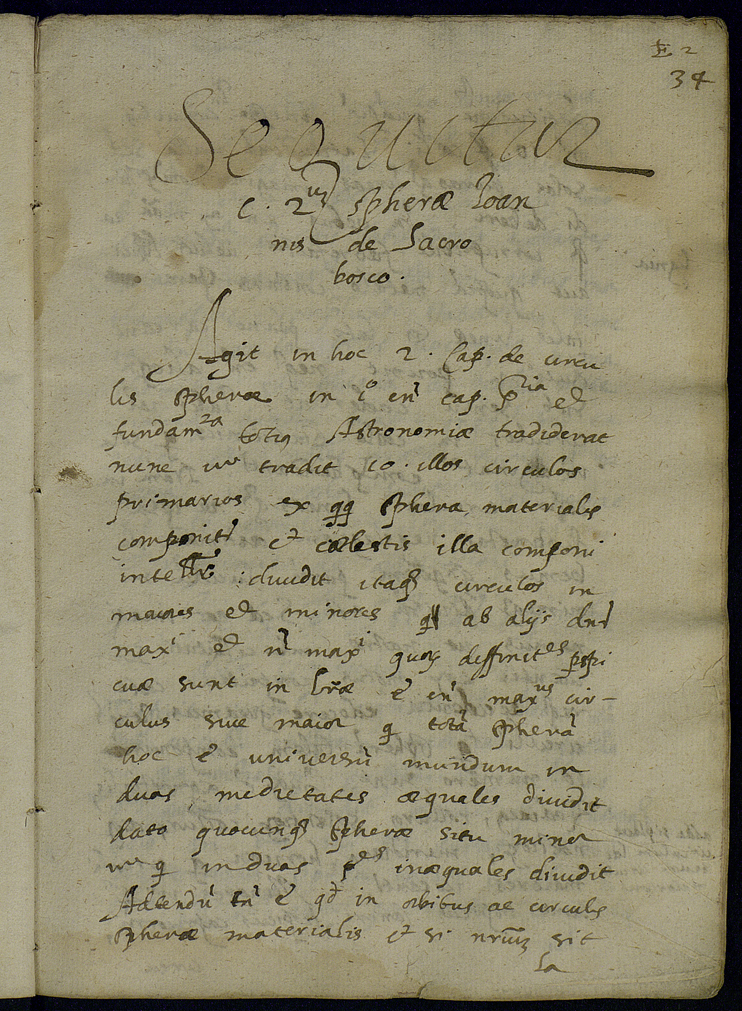 E 2
34
Sequitur
c. 2us spheræ Ioan
nis de Sacro
bosco.
Agit in hoc 2. Cap. de circu
lis spheræ in i° en̄ cap. p̄cia et
fundamta totiq Astronomiæ tradiderat
nunc vr tradit 10. illos circulos
primarios ex qq sphera materialis
componitr et cælestis illa componi
: dividit itaq circulos in
maiores et minores q ab alijs dnr
maxi et n̄ maxi quoȝ deffinites pspi
cuæ sunt in lr̄æ ē en̄ maxus cir-
culus sive maior q totā spherā
hoc ē universū mundum in
duas medietates æquales dividit
dato quocunq spheræ situ minor
vr q in duas ptes inæquales dividit
Adtendū tn̄ ē qd in orbibus ac circulis
spheræ materialis et si nr̄um sit
la